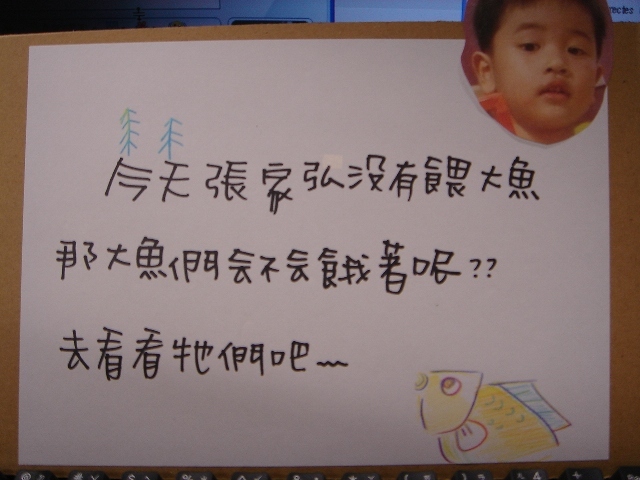 今天張家弘没有餵大魚
那大魚們会不会餓著呢??
去看看牠們吧~~